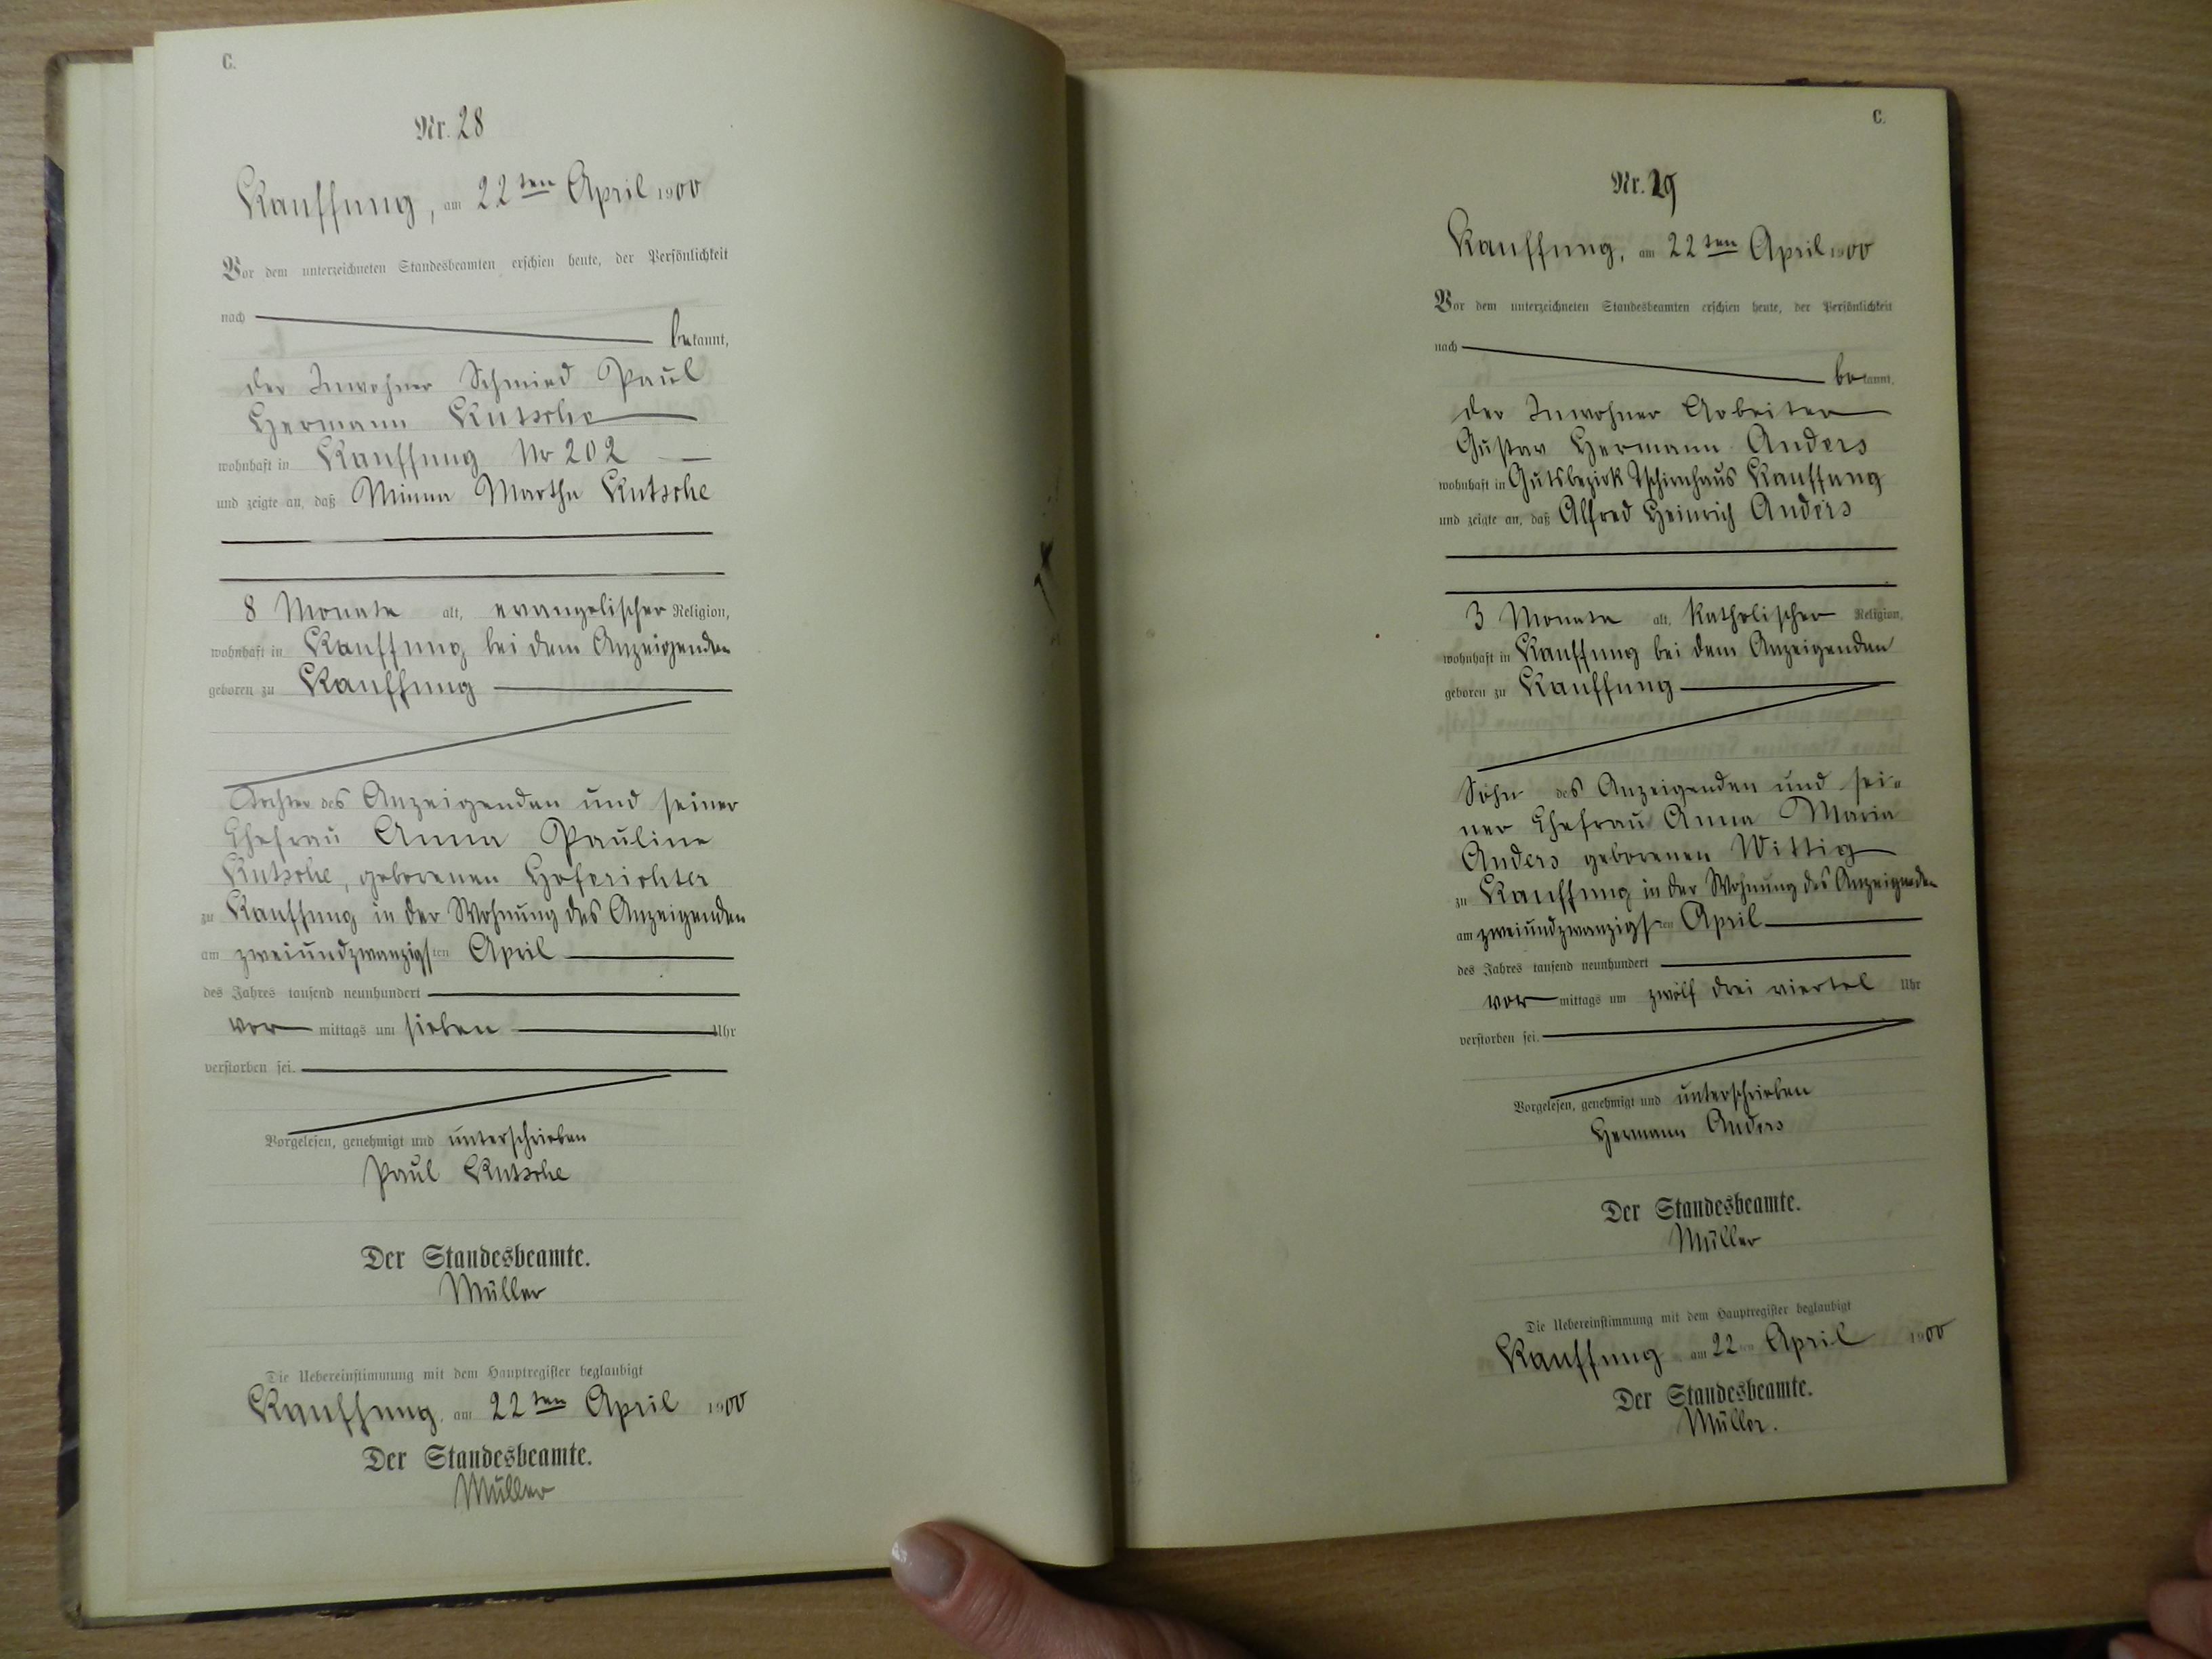 C.
Nr. 28
Kauffung, am 22ten April 1900
Vor dem unterzeichneten Standesbeamten erschien heute, der Persönlichkeit
nach
bekannt,
der Inwohner Schmied Paul
Hermann Kutsche
wohnhaft in Kauffung Nr 202
und zeigte an, daß Minna Martha Kutsche
8 Monate alt, evangelischer Religion,
wohnhaft in Kauffung bei dem Anzeigenden
geboren zu Kauffung
Tochter des Anzeigenden und seiner
Ehefrau Anna Pauline
Kutsche, geborenen Hoferichter
zu Kauffung in der Wohnung des Anzeigenden
am zweiundzwanzigsten April
des Jahres tausend neunhundert
vormittags um sieben Uhr
verstorben sei.
Vorgelesen, genehmigt und unterschrieben
Paul Kutsche
Der Standesbeamte.
Müller
Die Uebereinstimmung mit dem Hauptregister beglaubigt
Kauffung, am 22ten April 1900
Der Standesbeamte.
Müller
C.
Nr. 29
Kauffung, am 22ten April 1900
Vor dem unterzeichneten Standesbeamten erschien heute, der Persönlichkeit
nach
bekannt,
der Inwohner Arbeiter
Gustav Hermann Anders
wohnhaft in Gutsbezirk Tschirnhaus Kauffung
und zeigte an, daß Alfred Heinrich Anders
3 Monate alt, katholischer Religion,
wohnhaft in Kauffung bei dem Anzeigenden
geboren zu Kauffung
Sohn des Anzeigenden und sei-
ner Ehefrau Anna Maria
Anders geborenen Wittig
zu Kauffung in der Wohnung des Anzeigenden
am zweiundzwanzigsten April
des Jahres tausend neunhundert
vormittags um zwölf drei viertel Uhr
verstorben sei.
Vorgelesen, genehmigt und unterschrieben
Hermann Anders
Der Standesbeamte.
Müller
Die Uebereinstimmung mit dem Hauptregister beglaubigt
Kauffung am 22ten April 1900
Der Standesbeamte.
Müller.